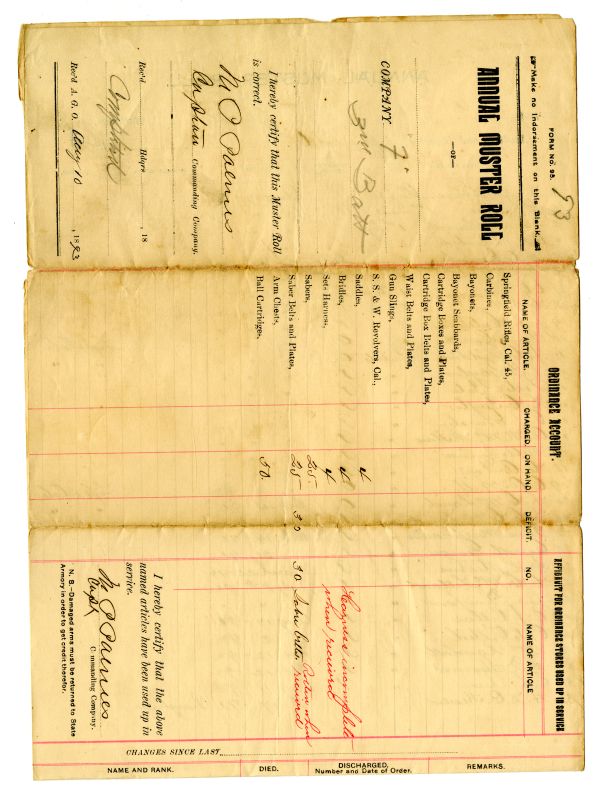 FORM NO. 93.
93
Make no Indorsement on this Blank.
ANNUAL MUSTER ROLL
—OF—
COMPANY "F"
3rd Batt
I hereby certify that this Muster Roll
is correct.
M P Palmer
Captain Commanding Company.
Rec'd. Hdqrs , 18
Rec'd A. G. O. Aug 10 , 1893
ORDNANCE ACCOUNT.
NAME OF ARTICLE. CHARGED. ON HAND. DEFICIT.
Springfield Rifles, Cal. 45,
Carbines,
Bayonets,
Bayonet Scabbards,
Cartridge Boxes and Plates,
Cartridge Box Belts and Plates,
Waist Belts and Plates,
Gun Slings,
S. S. & W. Revolvers, Cal.,
Saddles, 4
Bridles,
Sets Harness, 4
Sabers, 25
Saber Belts and Plates, 25 30
Arm Chests,
Ball Cartridges, 50.
AFFIDAVIT FOR ORDNANCE STORES USED UP IN SERVICE
NO. NAME OF ARTICLE
Harness incomplete
when received
30 Saber belts, Rotten when
received
I hereby certify that the above
named articles have been used up in
service.
M P Palmer
Capt Commanding Company.
N. B.—Damaged arms must be returned to State
Armory in order to get credit therefor.
CHANGES SINCE LAST
NAME AND RANK. DIED. DISCHARGED, Number and Date of Order. REMARKS.